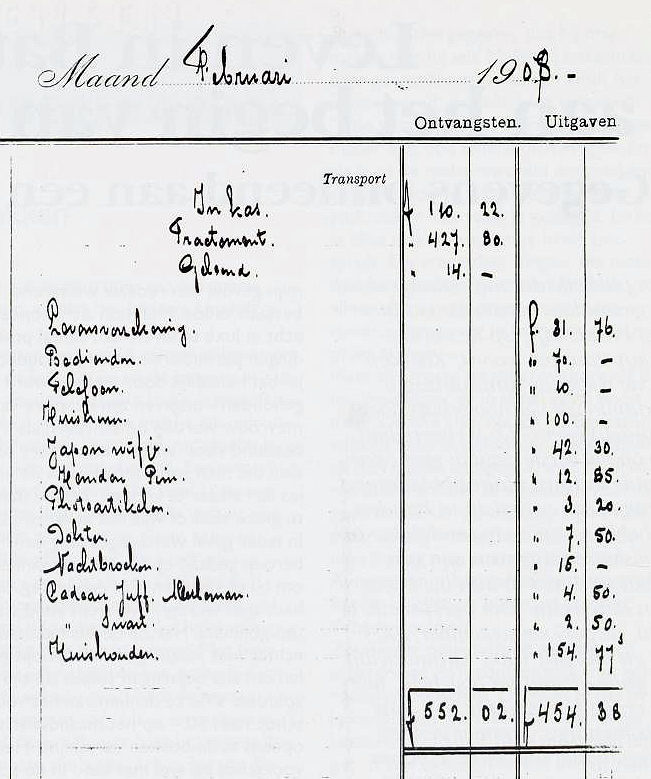 Maand Februari 1908. -
Ontvangsten. Uitgaven
Transport
In kas. f 110. 22.
Tractement. " 427. 80.
Geleend. " 14. –
Levensverzekering. f 31. 76.
Bedienden. " 70. –
Telefoon. " 10. –
Huishuur. " 100. –
Japon wijfje. " 42. 30.
Hemden Pim. " 12. 85.
Photoartikelen. " 3. 20.
Dokter. " 7. 50.
Nachtbroeken. " 15. –
Cadeau Juff. Meuleman. " 4. 50.
" " 2. 50.
Huishouden. " 154. 77
f 552. 02. f 454. 38